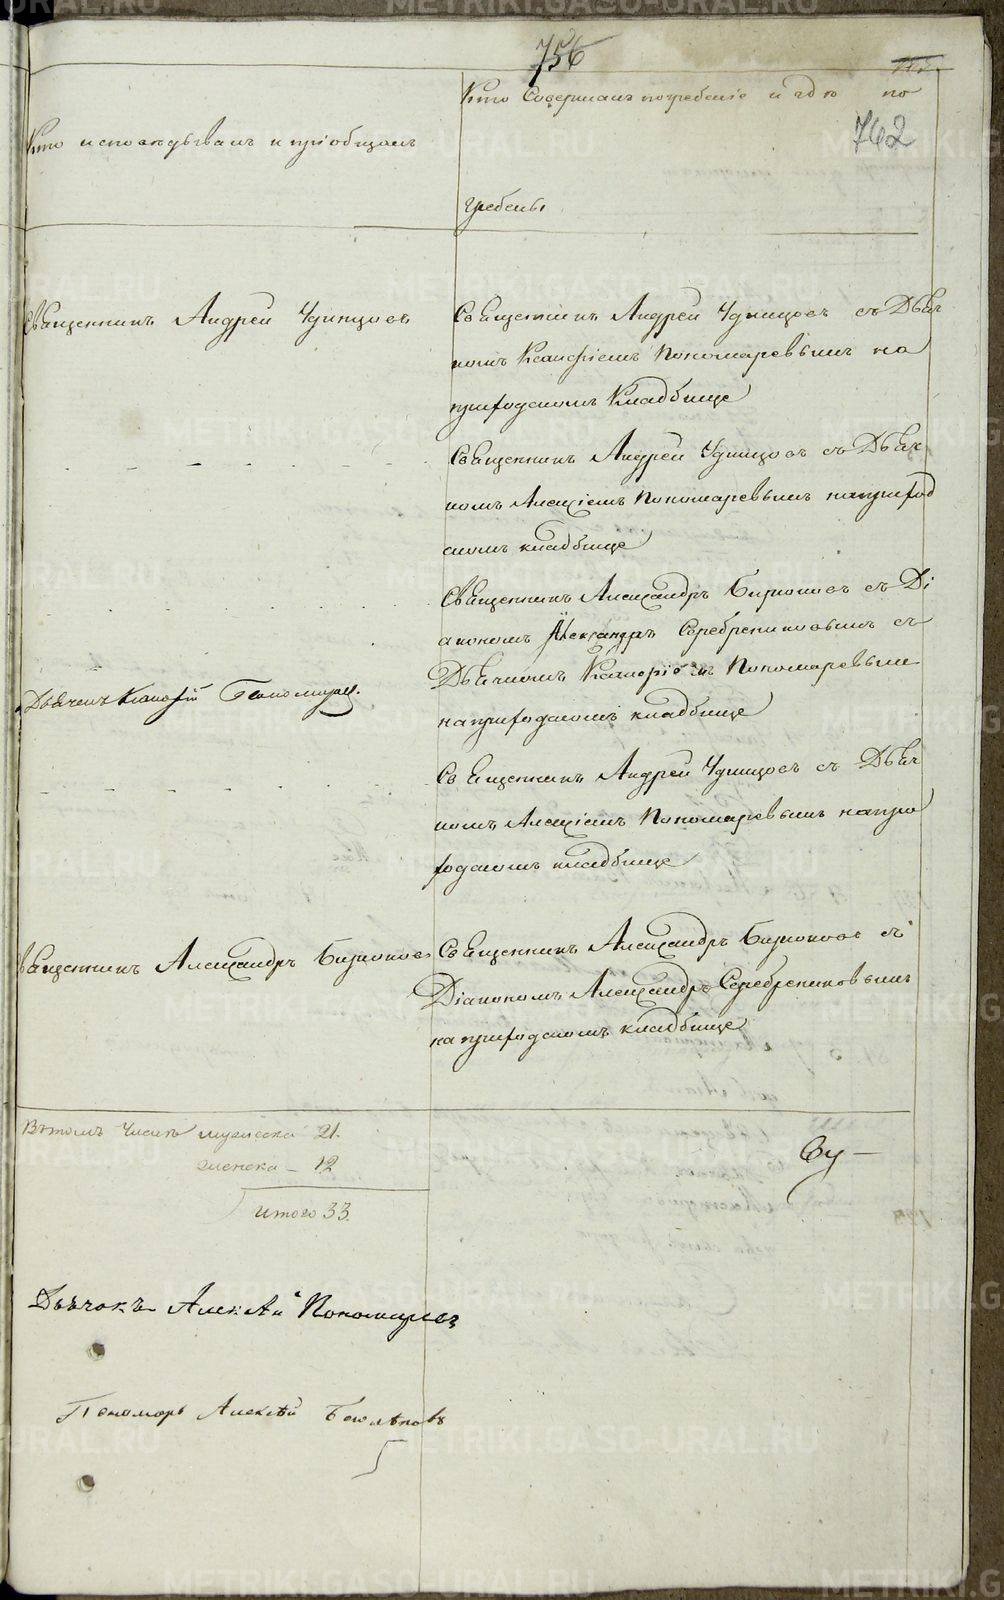 756
762
Кто исповѣдывалъ и пріобщалъ
Кто Совершалъ погребеніе и гдѣ по
гребены
Священникъ Андрей Удинцовъ
Священникъ Андрей Удинцовъ съ Дьяч
комъ Пономаревымъ на
приходскомъ Кладбище
Священникъ Андрей Удинцовъ съ Дьяч
комъ Алексіемъ Пономаревымъ на приход
скомъ кладбище
Священникъ Александръ Бирюковъ съ Ді
акономъ Александръ Серебрениковымъ съ
Дьячкомъ Пономаревым
на приходскомъ кладбище
Дьячекъ Пономаревъ
Священникъ Андрей Удинцовъ съ Дьяч
комъ Алексіемъ Пономаревымъ на при
ходскомъ кладбище
вященникъ Александръ Бирюковъ
Священникъ Александръ Бирюковъ съ
Діакономъ Александръ Серебрениковымъ
на приходскомъ кладбище
Вътомъ числѣ мужеска 21.
женска – 12
итого 33.
Дьячокъ Алексѣй Пономаревъ
Пономарь Алексѣй
METRIKI.GASO-URAL.RU